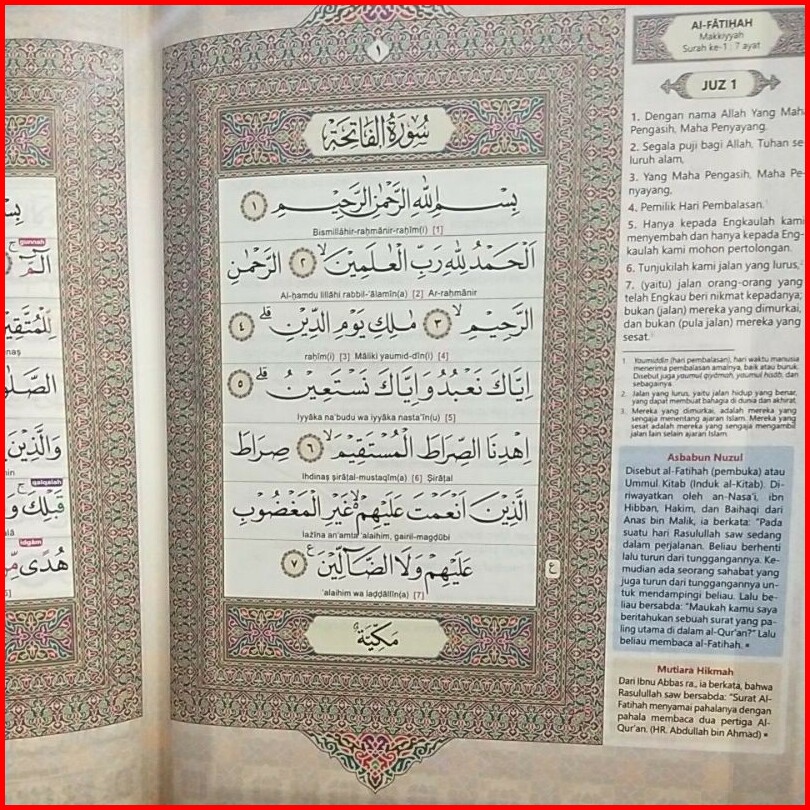 ١
سُورَةُ الْفَاتِحَةِ
بِسْمِ اللّٰهِ الرَّحْمٰنِ الرَّحِيْمِ ١
Bismillāhir-raḥmānir-raḥīm(i) [1]
اَلْحَمْدُ لِلّٰهِ رَبِّ الْعٰلَمِيْنَۙ ٢ الرَّحْمٰنِ
Al-ḥamdu lillāhi rabbil-‘ālamīn(a) [2] Ar-raḥmānir
الرَّحِيْمِۙ ٣ مٰلِكِ يَوْمِ الدِّيْنِۗ ٤
raḥīm(i) [3] Māliki yaumid-dīn(i) [4]
اِيَّاكَ نَعْبُدُ وَاِيَّاكَ نَسْتَعِيْنُۗ ٥
Iyyāka na'budu wa iyyāka nasta'īn(u) [5]
اِهْدِنَا الصِّرَاطَ الْمُسْتَقِيْمَۙ ٦ صِرَاطَ
Ihdinaṣ ṣirāṭal-mustaqīm(a) [6] Ṣirāṭal
الَّذِيْنَ اَنْعَمْتَ عَلَيْهِمْ ۙ غَيْرِ الْمَغْضُوْبِ
lażīna an'amta 'alaihim, gairil-magḍūbi
عَلَيْهِمْ وَلَا الضَّاۤلِّيْنَ ࣖ ٧
'alaihim wa laḍḍāllīn(a) [7]
ع
مَكِّيَّة
Al-FĀTIḤAH
Makkiyyah
Surah ke-1 : 7 ayat
JUZ 1
1. Dengan nama Allah Yang Maha
Pengasih, Maha Penyayang.
2. Segala puji bagi Allah, Tuhan se-
luruh alam,
3. Yang Maha Pengasih, Maha Pe-
nyayang,
4. Pemilik Hari Pembalasan.¹
5. Hanya kepada Engkaulah kami
menyembah dan hanya kepada Eng-
kaulah kami mohon pertolongan.
6. Tunjukilah kami jalan yang lurus,²
7. (yaitu) jalan orang-orang yang
telah Engkau beri nikmat kepadanya;
bukan (jalan) mereka yang dimurkai,
dan bukan (pula jalan) mereka yang
sesat.³
1. Youmiddin (hari pembalasan), hari waktu manusia
menerima pembalasan amalnya, baik atau buruk.
Disebut juga yaumul qiyāmah, yaumul hisāb, dan
sebagainya.
2. Jalan yang lurus, yaitu jalan hidup yang benar,
yang dapat membuat bahagia di dunia dan akhirat.
3. Mereka yang dimurkai, adalah mereka yang
sengaja menentang ajaran Islam. Mereka yang
sesat adalah mereka yang sengaja mengambil
jalan lain selain ajaran Islam.
Asbabun Nuzul
Disebut al-Fatihah (pembuka) atau
Ummul Kitab (Induk al-Kitab). Di-
riwayatkan oleh an-Nasa'i, ibn
Hibban, Hakim, dan Baihaqi dari
Anas bin Malik, ia berkata: "Pada
suatu hari Rasulullah saw sedang
dalam perjalanan. Beliau berhenti
lalu turun dari tunggangannya. Ke-
mudian ada seorang sahabat yang
juga turun dari tunggangannya un-
tuk mendampingi beliau. Lalu be-
liau bersabda: "Maukah kamu saya
beritahukan sebuah surat yang pa-
ling utama di dalam al-Qur'an?" Lalu
beliau membaca al-Fatihah.
Mutiara Hikmah
Dari Ibnu Abbas ra., ia berkata, bahwa
Rasulullah saw bersabda: "Surat Al-
Fatihah menyamai pahalanya dengan
pahala membaca dua pertiga Al-
Qur'an. (HR. Abdullah bin Ahmad)
gunnah
الۤمّۤ
لِّلْمُتَّقِيْنَ
وَالَّذِيْنَ
qalqalah
قَبْلِكَ
idgām
هُدًى